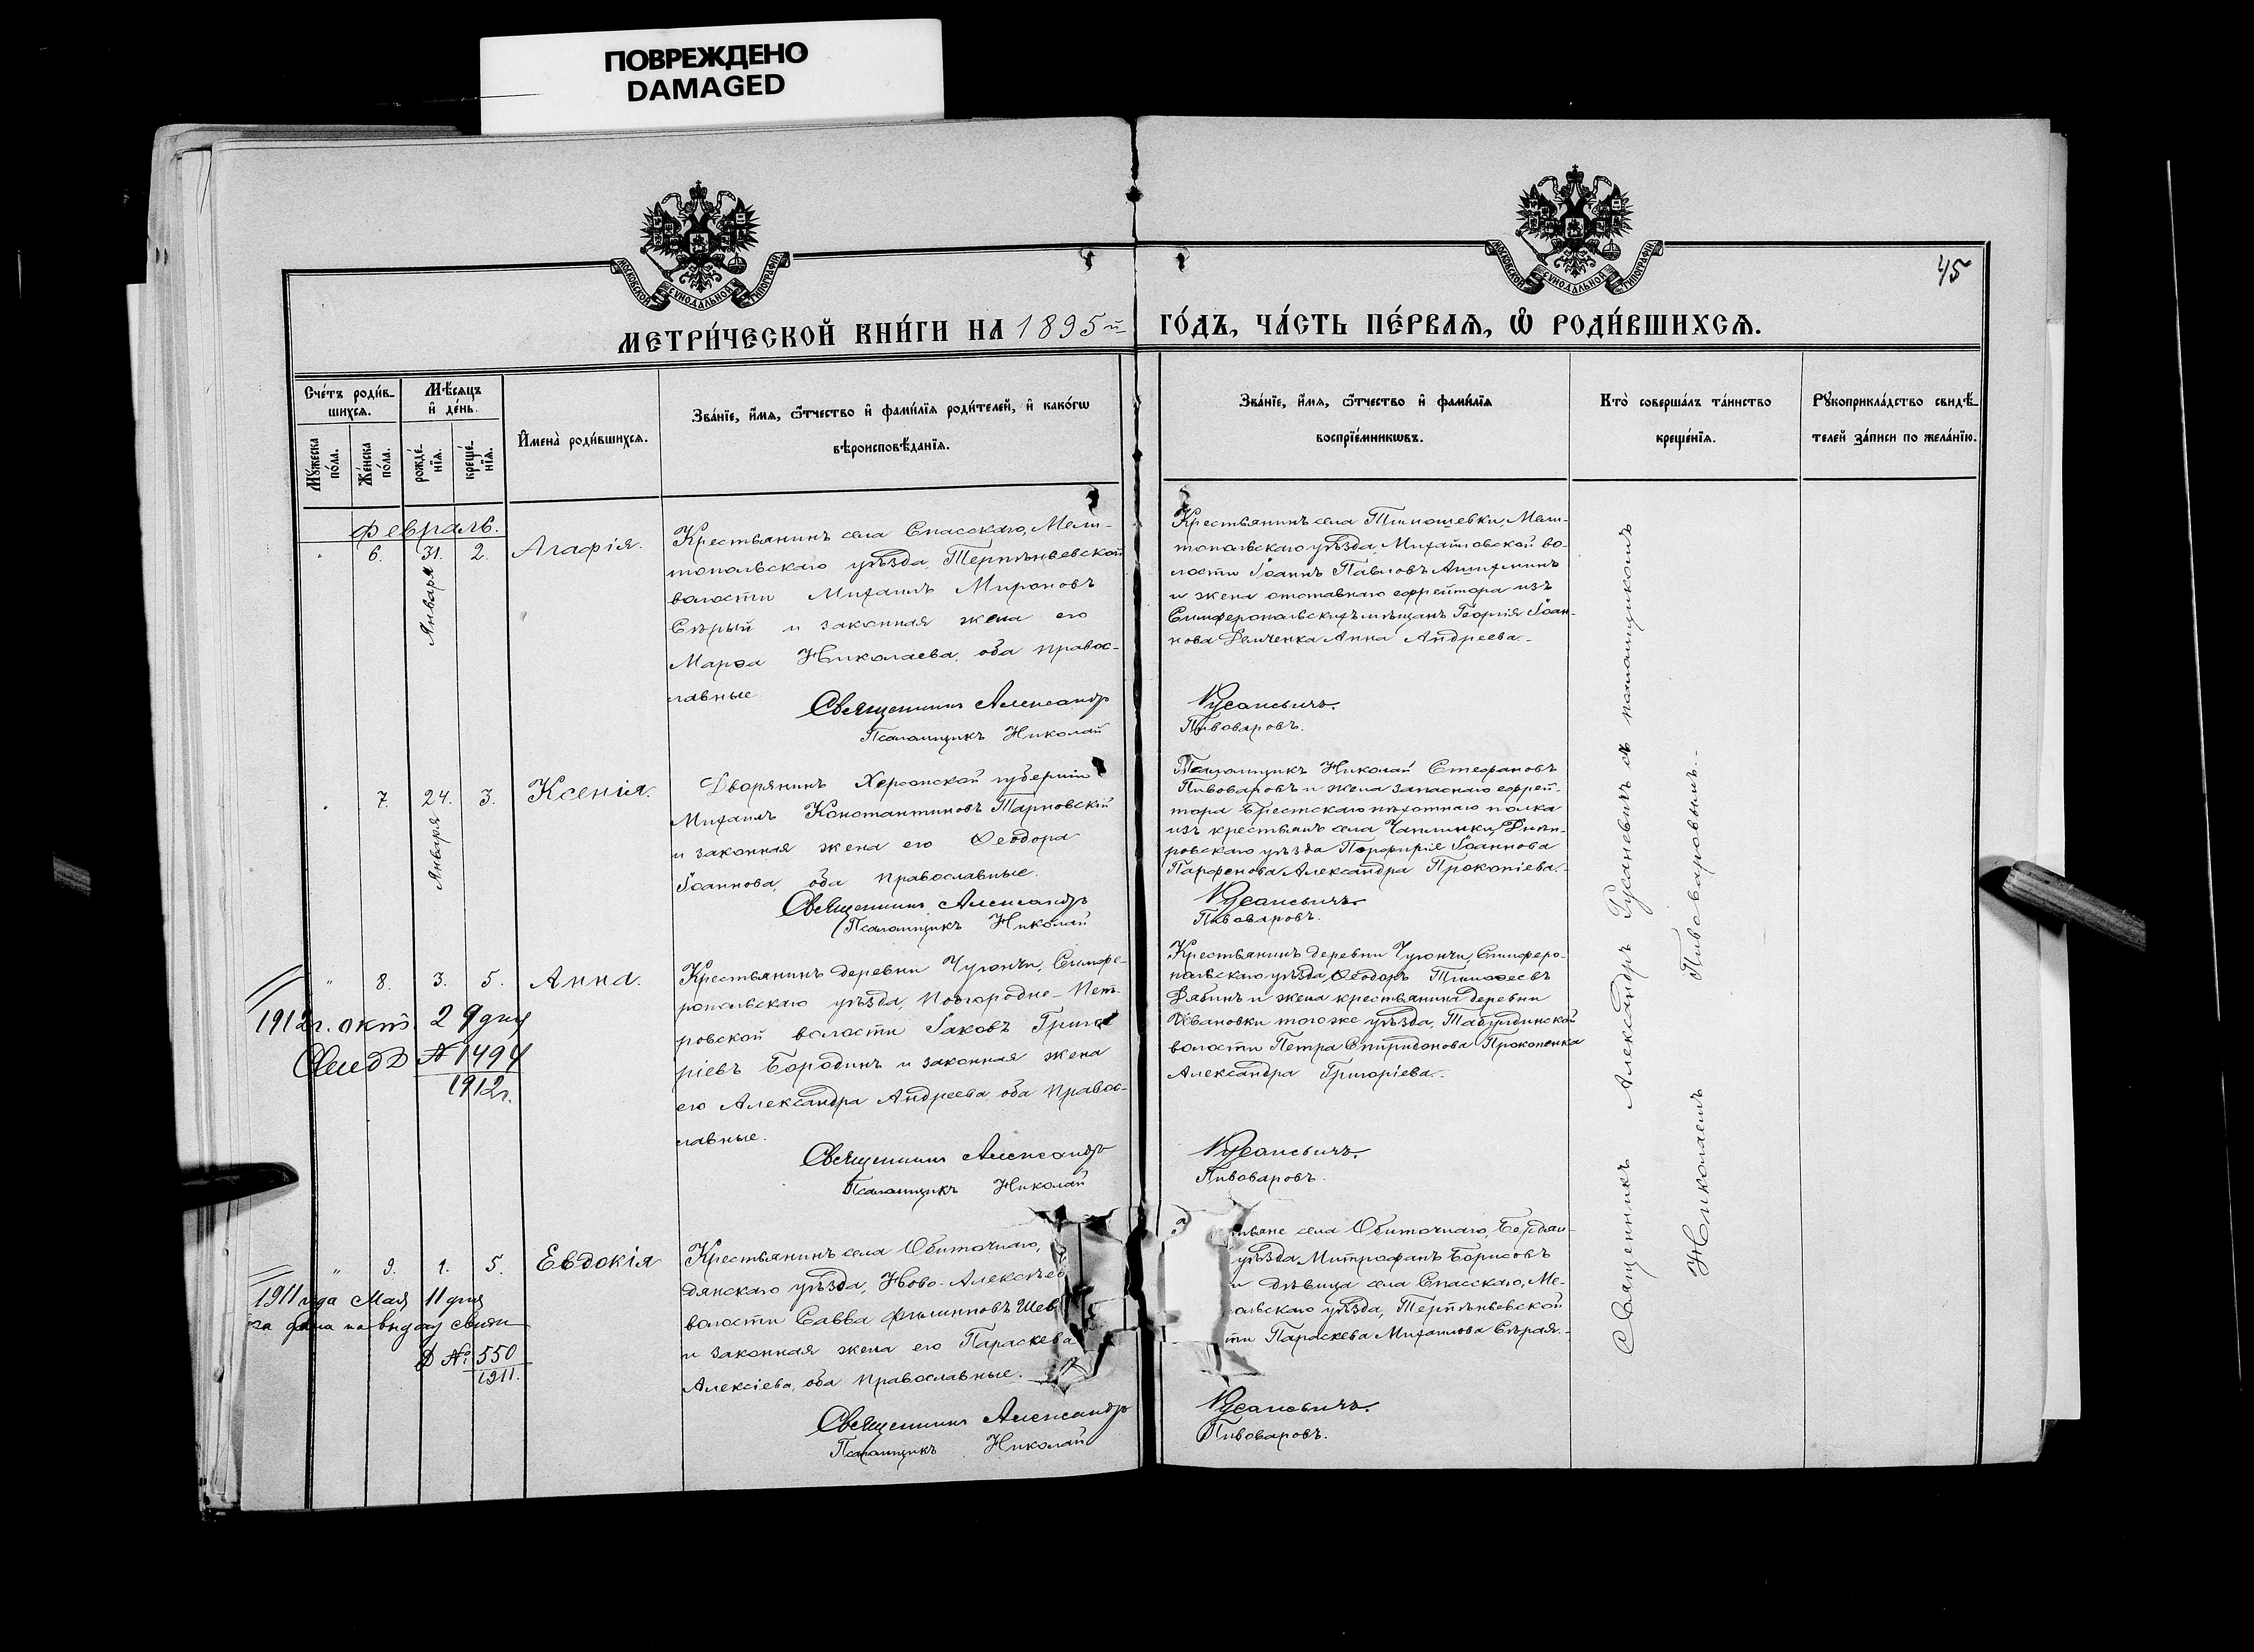 ПОВРЕЖДЕНО
DAMAGED
МОСКОВСКОЙ СѴНОДАЛЬНОЙ ТИПОГРАФІИ
МОСКОВСКОЙ СѴНОДАЛЬНОЙ ТИПОГРАФІИ
45
МЕТРИ́ЧЕСКОЙ КНИ́ГИ НА 1895й
ГО́ДЪ, ЧА́СТЬ ПЕ́РВАѦ, Ѽ РОДИ́ВШИХСѦ.
Сче́тъ роди́в-
шихсѧ.
Мѣ́сѧцъ
и҆ де́нь.
Мꙋ́жеска
по́ла.
Же́нска
по́ла.
рожде́-
нїѧ.
креще́-
нїѧ.
И҆мена̀ роди́вшихсѧ.
Зва́нїе, и҆́мѧ, ѻ҆́тчество и҆ фами́лїѧ роди́телей, и҆ како́гѡ
вѣроисповѣ́данїѧ.
Зва́нїе, и҆́мѧ, ѻ҆́тчество и҆ фами́лїѧ
воспрїе́мникѡвъ.
Кто̀ соверша́лъ та́инство
креще́нїѧ.
Рꙋкоприкла́дство свидѣ́-
телей за́писи по жела́нїю.
Февраль.
" 6. 31. 2. Агафія.
Января
Крестьянинъ села Спасскаго, Мели-
топольскаго уѣзда, Терпѣньевской
волости Михаилъ Мироновъ
Сѣрый и законная жена его
Марѳа Николаева, оба правос-
лавные.
Священникъ Александръ
Псаломщикъ Николай
Крестьянинъ села Тимошевки, Мели-
топольскаго уѣзда, Михайловской во-
лости Іоаннъ Павловъ
и жена отставнаго ефрейтора изъ
Симферопольскихъ мѣщанъ Георгія Іоан-
нова Демченка Анна Андреева.-
Русаневичъ.
Пивоваровъ.
" 7. 24. 3. Ксенія.
Января
Дворянинъ Херсонской губерніи
Михаилъ Константиновъ Тарновскій
и законная жена его Ѳеодора
Іоаннова, оба православные.
Священникъ Александръ
Псаломщикъ Николай
Псаломщикъ Николай Стефановъ
Пивоваровъ и жена запаснаго ефрей-
тора Брестскаго пѣхотнаго полка
изъ крестьянъ села Чаплинки, Днѣп-
ровскаго уѣзда Порфирія Іоаннова
Парфенова Александра Прокопіева.-
Русаневичъ.
Пивоваровъ.
" 8. 3. 5. Анна.
1912г. окт. 29 дня
Свид № 1494
1912г.
Крестьянинъ деревни Чугончи, Симфе-
ропольскаго уѣзда, Подгородне-Пет-
ровской волости Іаковъ Григо-
ріевъ Бородинъ и законная жена
его Александра Андреева, оба правос-
лавные.
Священникъ Александръ
Псаломщикъ Николай
Крестьянинъ деревни Чугончи, Симферо-
польскаго уѣзда, Ѳеодоръ Тимоѳеевъ
Бабинъ и жена крестьянина деревни
Ивановки тогоже уѣзда, Табулдинской
волости Петра Спиридонова Прокопенка
Александра Григоріева.-
Русаневичъ.
Пивоваровъ.
" 9. 1. 5. Евдокія
1911 года Мая 11 дня
выдачу
№ 550
1911.
Крестьянинъ села Обиточнаго,
дянскаго уѣзда, Ново-Алексѣев
волости Савва Филипповъ Шев
и законная жена его Параскева
Алексіева, оба православные.
Священникъ Александръ
Псаломщикъ Николай
тьяне села Обиточнаго, Бердян-
уѣзда, Митрофанъ Борисовъ
и дѣвица села Спасскаго, Ме-
ольскаго уѣзда, Терпѣньевской
сти Параскева Михаилова Сѣрая.-
Русаневичъ.
Пивоваровъ.
Священникъ Александръ Русаневичъ съ псаломщикомъ
Николаемъ Пивоваровымъ.-